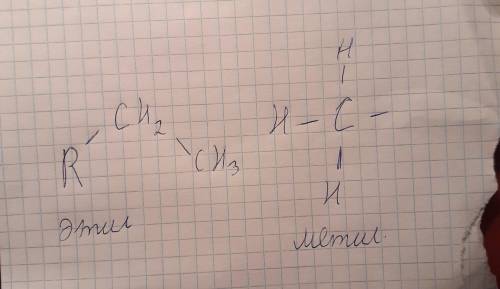 R CH₂ CH₃
этил
H
H – C –
H
метил